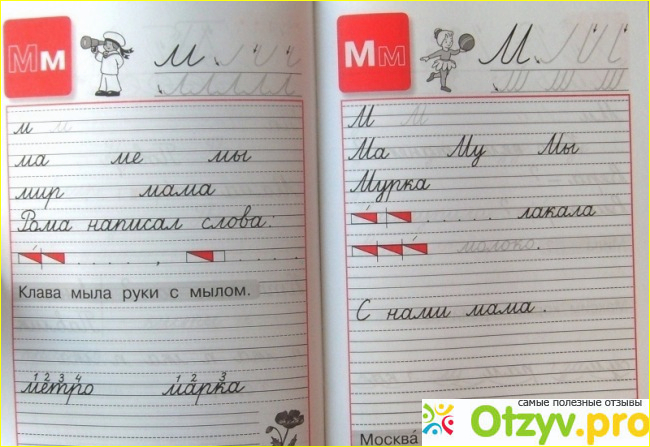 Мм
м
м
ма ме мы
мир мама
Рома написал слова:
,
Клава мыла руки с мылом.
1 2 3 4 1 2 3
метро марка
Мм
М
М М
Ма Му Мы
Мурка
лакала
молоко.
С нами мама.
Москва
самые полезные отзывы
Otzyv.pro